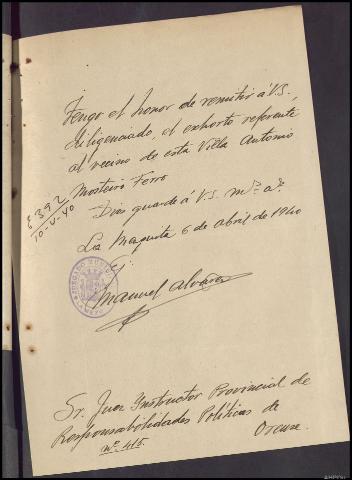 Tengo el honor de remitir á V.S.,
diligenciado, el exhorto referente
al vecino de esta Villa Antonio
Mosteiro Ferro
Dios guarde á V.S. ms. as.
La Mezquita 6 de abril de 1940
Ej:
Manuel Alvarez
E 392
10-4-40
JUZGADO MUNICIPAL
Sr. Juez Instructor Provincial de
Responsabilidades Políticas de
Orense.
nº 415.